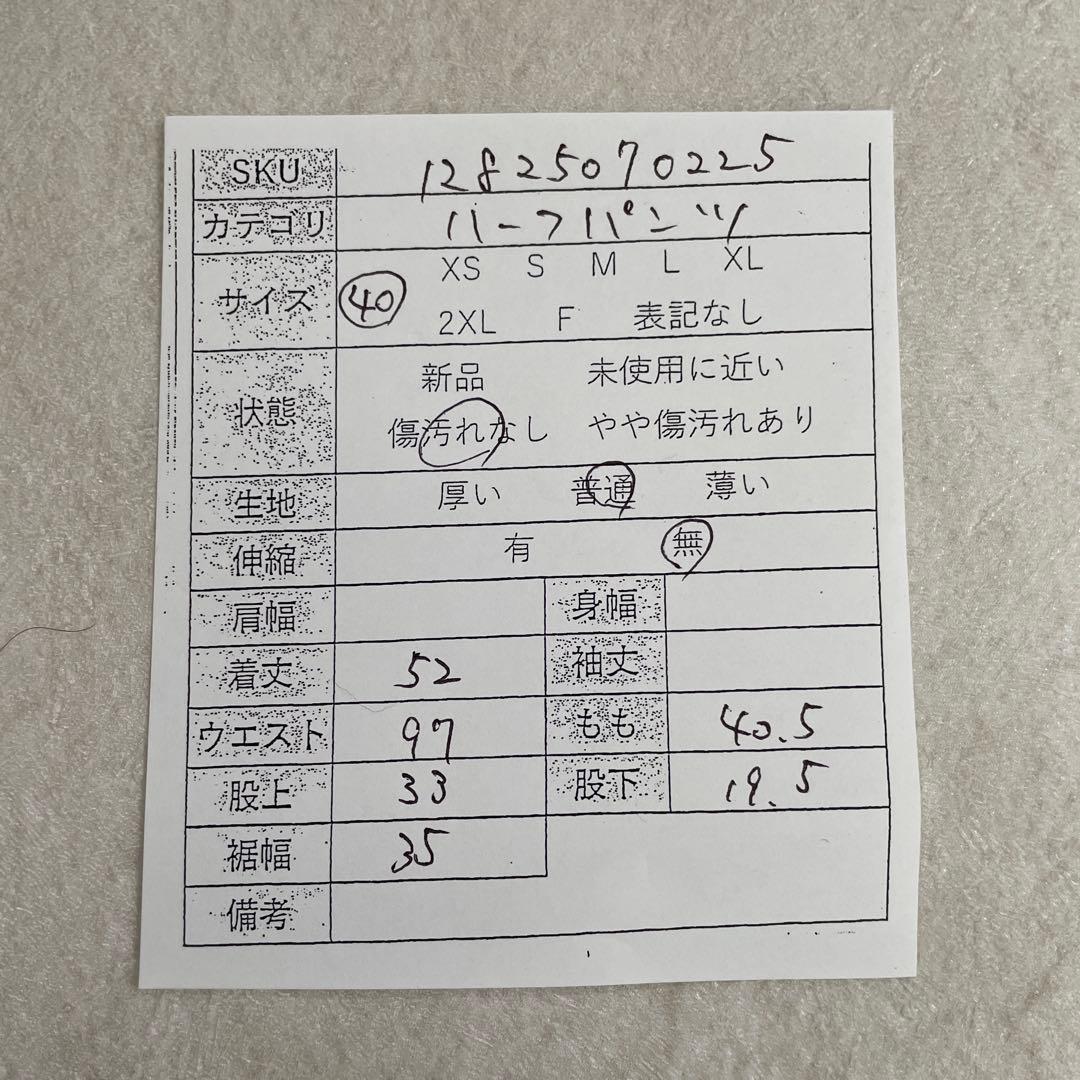 SKU 12825070225
カテゴリ ハーフパンツ
XS S M L XL
サイズ 40
2XL F 表記なし
新品 未使用に近い
状態
傷汚れなし やや傷汚れあり
生地 厚い 普通 薄い
伸縮 有 無
肩幅 身幅
着丈 52 袖丈
ウエスト 97 もも 40.5
股上 33 股下 19.5
裾幅 35
備考